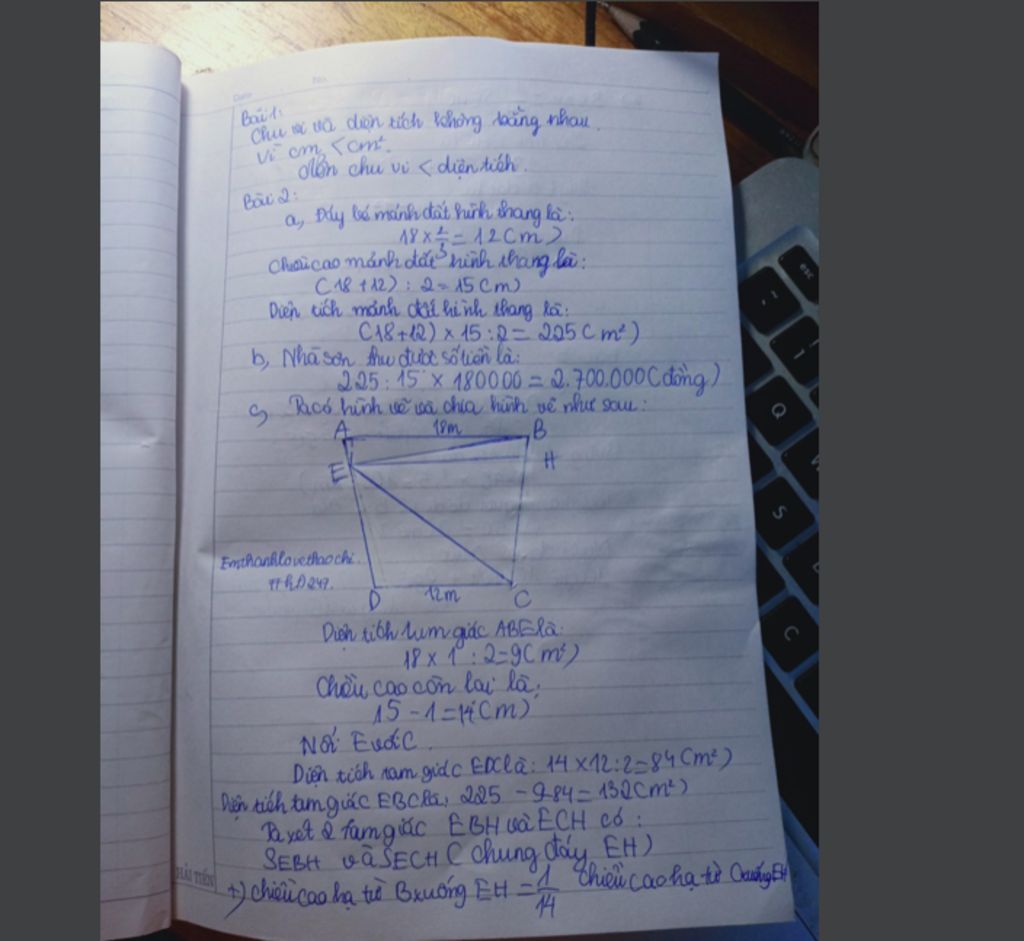 Bài 1:
Chu vi và diện tích không bằng nhau.
Vì cm < cm².
Nên chu vi < diện tích.
Bài 2:
a, Đáy bé mảnh đất hình thang là:
18 × 2/3 = 12 (m)
Chiều cao mảnh đất hình thang là:
(18 + 12) : 2 = 15 (m)
Diện tích mảnh đất hình thang là:
(18 + 12) × 15 : 2 = 225 (m²)
b, Nhà sơn thu được số tiền là:
225 : 15 × 180000 = 2.700.000 (đồng)
c, Ta có hình vẽ và chia hình vẽ như sau:
A 18m B
E H
Emthanhlovethaochi.
D 12m C
Diện tích tam giác ABE là:
18 × 1 : 2 = 9 (m²)
Chiều cao còn lại là:
15 - 1 = 14 (m)
Nối E với C.
Diện tích tam giác EDC là: 14 × 12 : 2 = 84 (m²)
Diện tích tam giác EBC là, 225 - 9 - 84 = 132 (m²)
Ta xét 2 tam giác EBH và ECH có:
SEBH và SECH (chung đáy EH)
+) Chiều cao hạ từ B xuống EH = 1/14 chiều cao hạ từ C xuống EH
HẢI TIẾN
Q
S
C